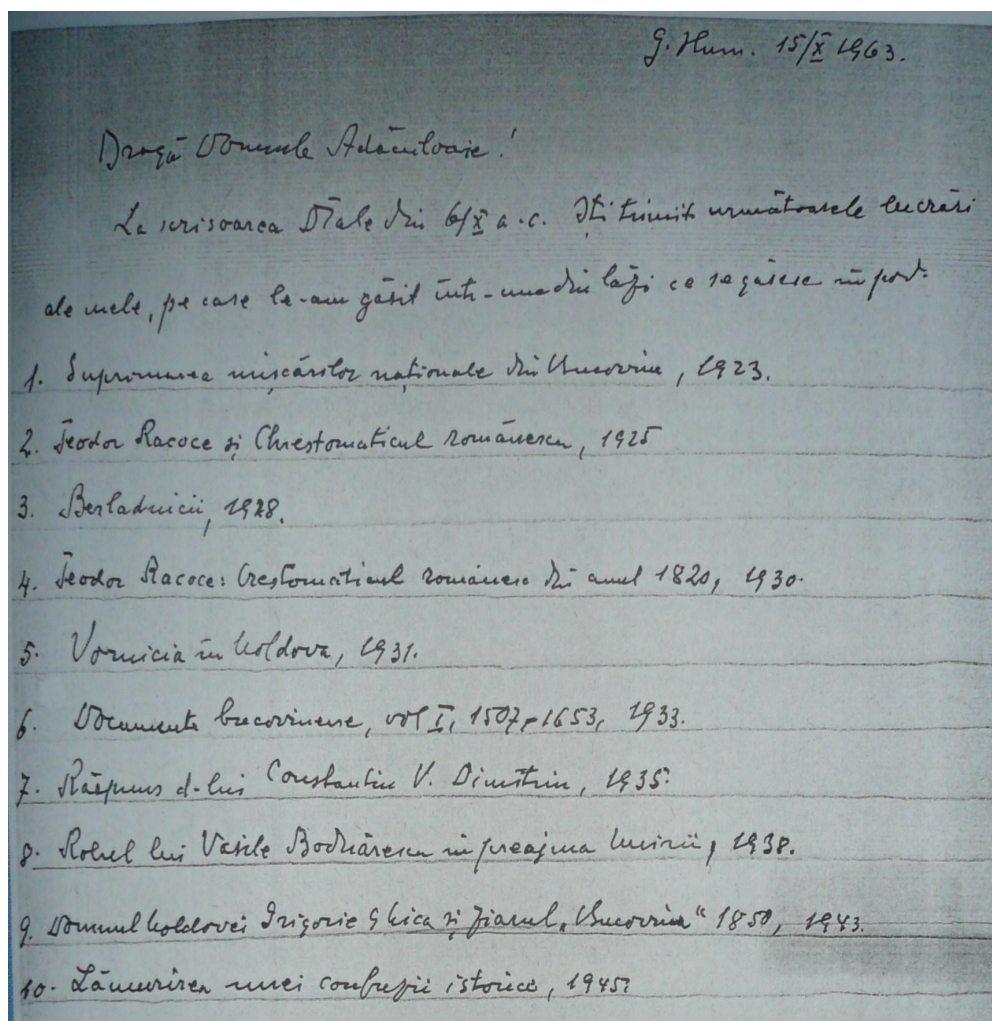 G. Hum. 15/X 1963.
Dragă Domnule Adăculoaie!
La scrisoarea D-tale din 6/X a.c. Iți trimit următoarele lucrări
ale mele, pe care le-am găsit într-una din lăzi ce se găsesc în pod:
1. Suprimarea mișcărilor naționale din Bucovina, 1923.
2. Teodor Racoce și Chrestomaticul românescu, 1925
3. Berladnicii, 1928.
4. Teodor Racoce: Crestomaticul românesc din anul 1820, 1930.
5. Vornicia în Moldova, 1931.
6. Documente bucovinene, vol I, 1507-1653, 1933.
7. Răspuns d-lui Constantin V. Dimitriu, 1935.
8. Rolul lui Vasile Bodnărescu în preajma Unirii, 1938.
9. Domnul Moldovei Grigorie Ghica și ziarul „Bucovina" 1850, 1943.
10. Lămurirea unei confuzii istorice, 1945.